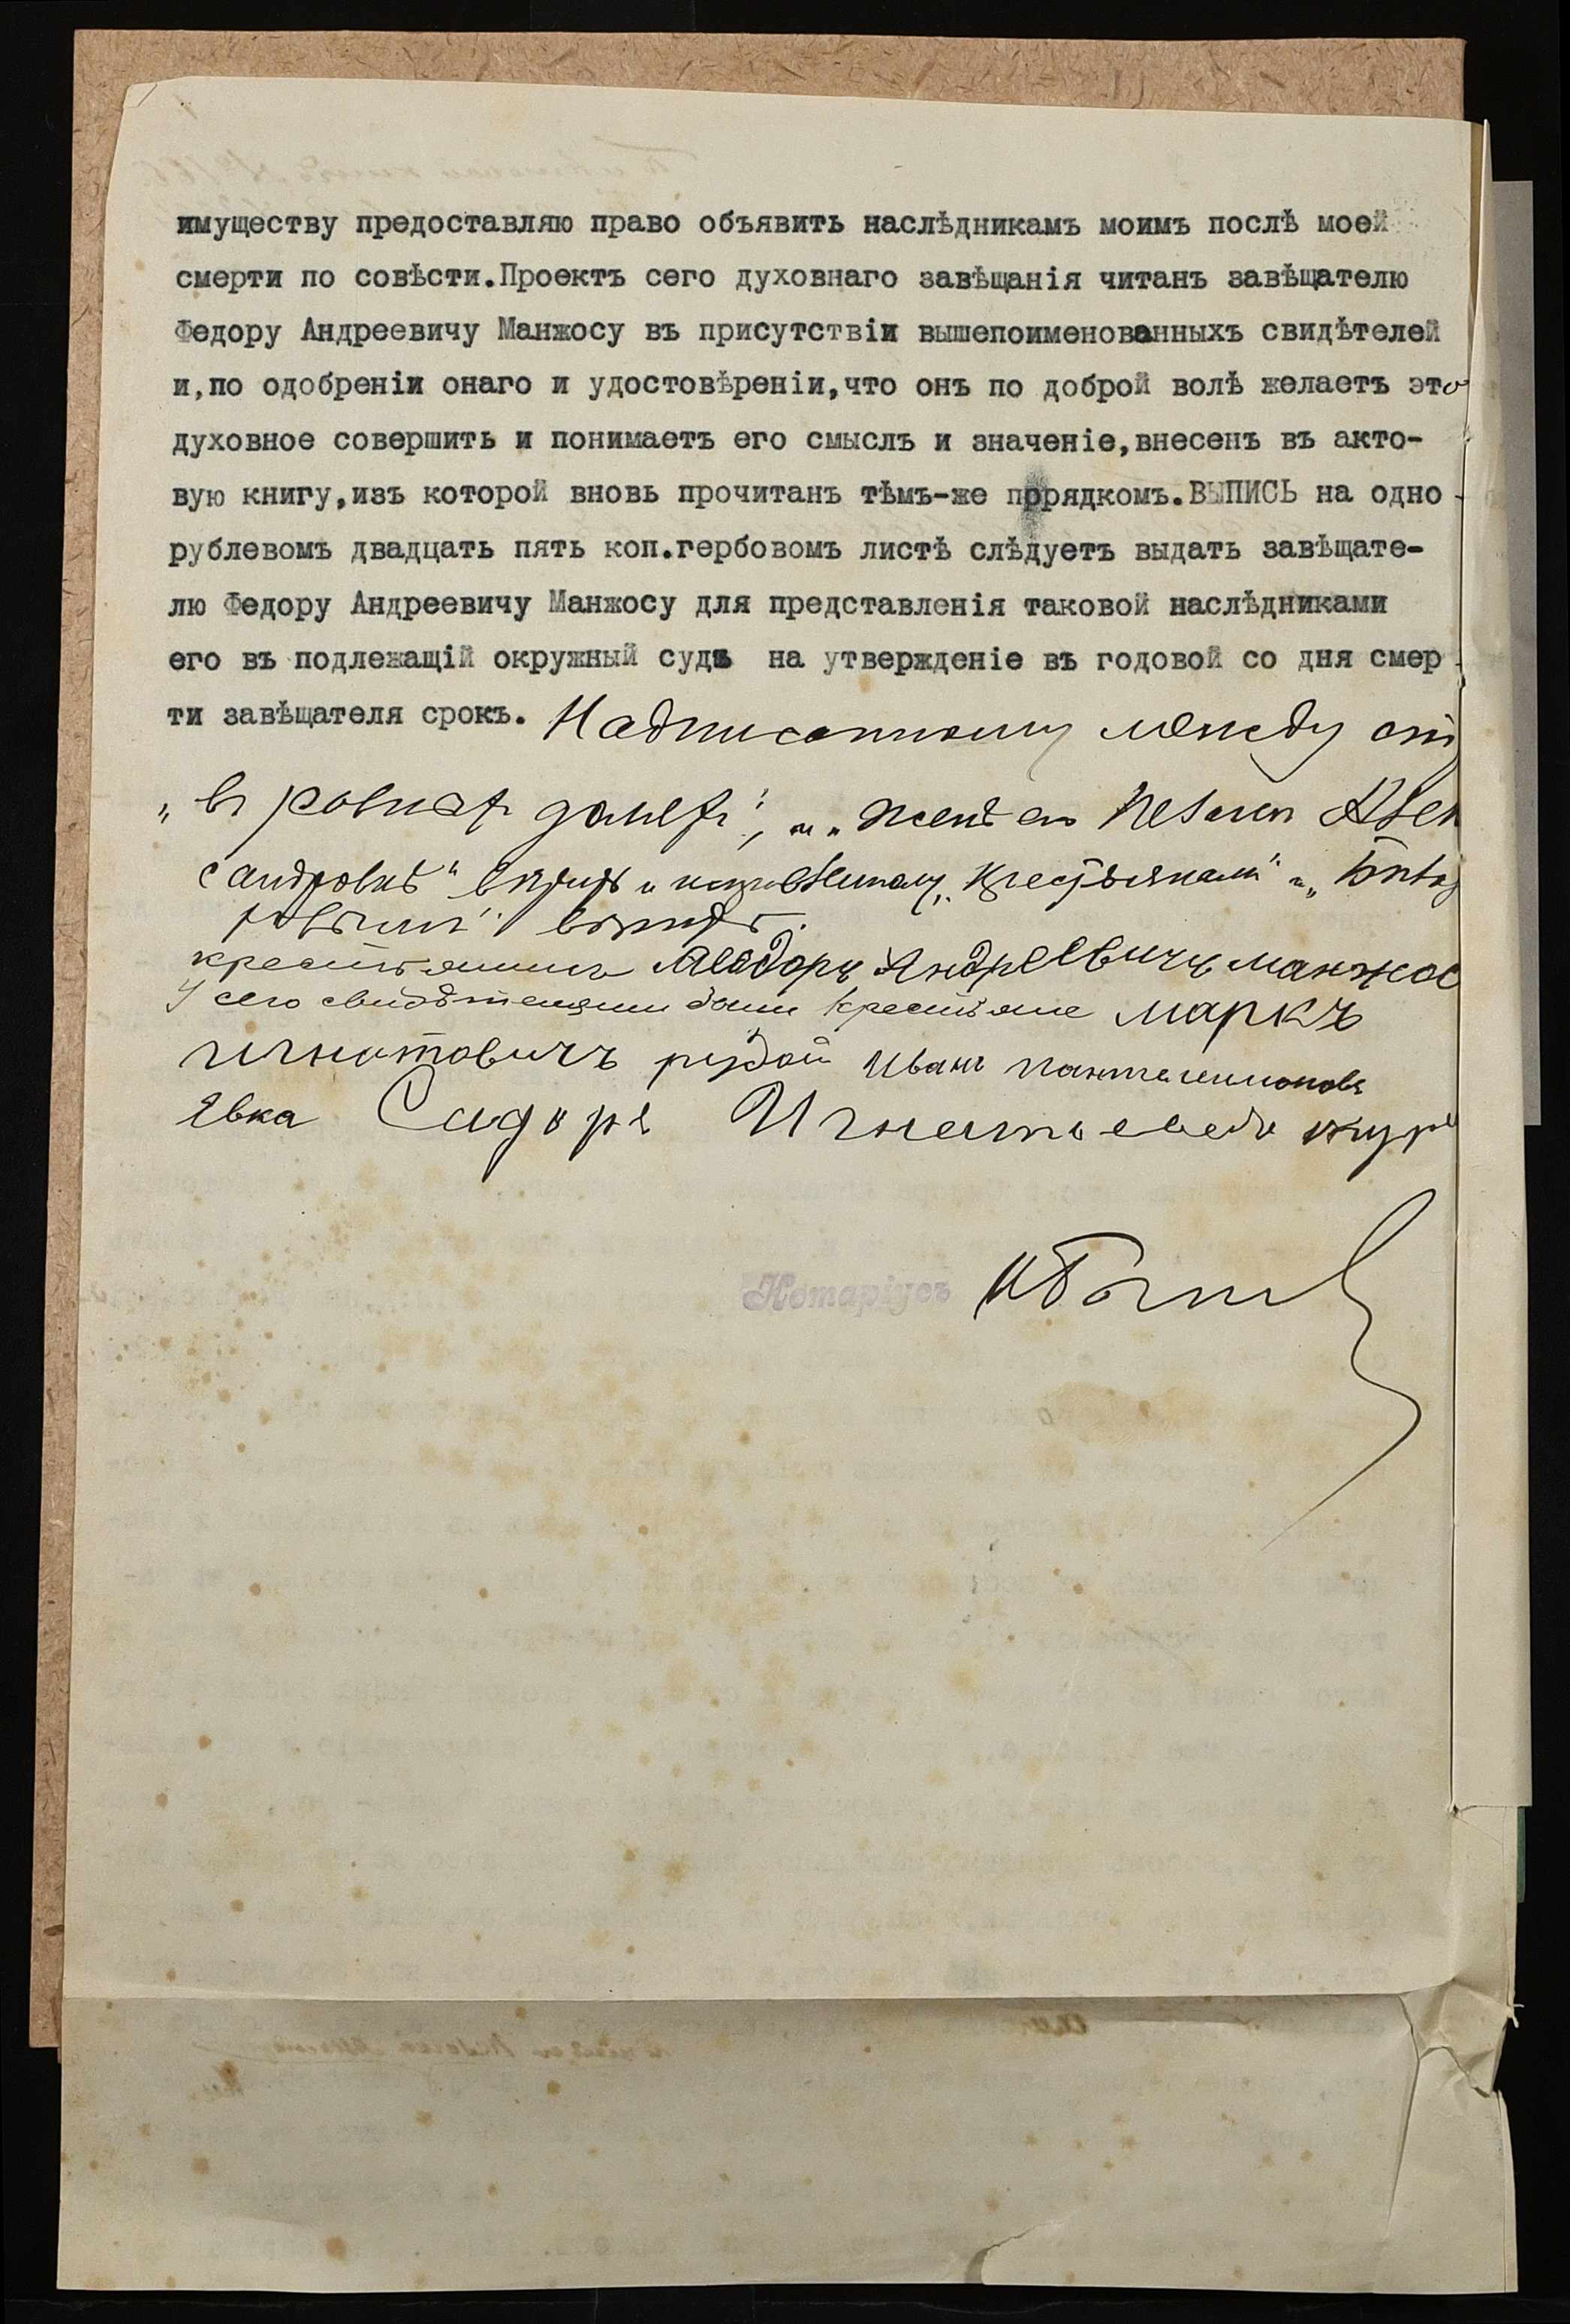 имуществу предоставляю право объявить наслѣдникамъ моимъ послѣ моей
смерти по совѣсти.Проектъ сего духовнаго завѣщанія читанъ завѣщателю
Федору Андреевичу Манжосу въ присутствіи вышепоименованныхъ свидѣтелей
и,по одобреніи онаго и удостовѣреніи,что онъ по доброй волѣ желаетъ это
духовное совершить и понимаетъ его смыслъ и значеніе,внесенъ въ акто-
вую книгу,изъ которой вновь прочитанъ тѣмъ-же порядкомъ.ВЫПИСЬ на одно-
рублевомъ двадцать пять коп.гербовомъ листѣ слѣдуетъ выдать завѣщате-
лю Федору Андреевичу Манжосу для представленія таковой наслѣдниками
его въ подлежащій окружный судъ на утвержденіе въ годовой со дня смер-
ти завѣщателя срокъ. Надписанному между
„въ равныхъ доляхъ", и „женѣ его
сандровнѣ" вѣрить и „крестьянами" и
вѣрить.
крестьянинъ Феодоръ Андреевичъ манжос
У сего свидѣтелями были крестьяне маркъ
игнатовичъ рудой Иванъ пантелимоновъ
Явка Сидоръ Игнатьевичъ
Нотаріусъ